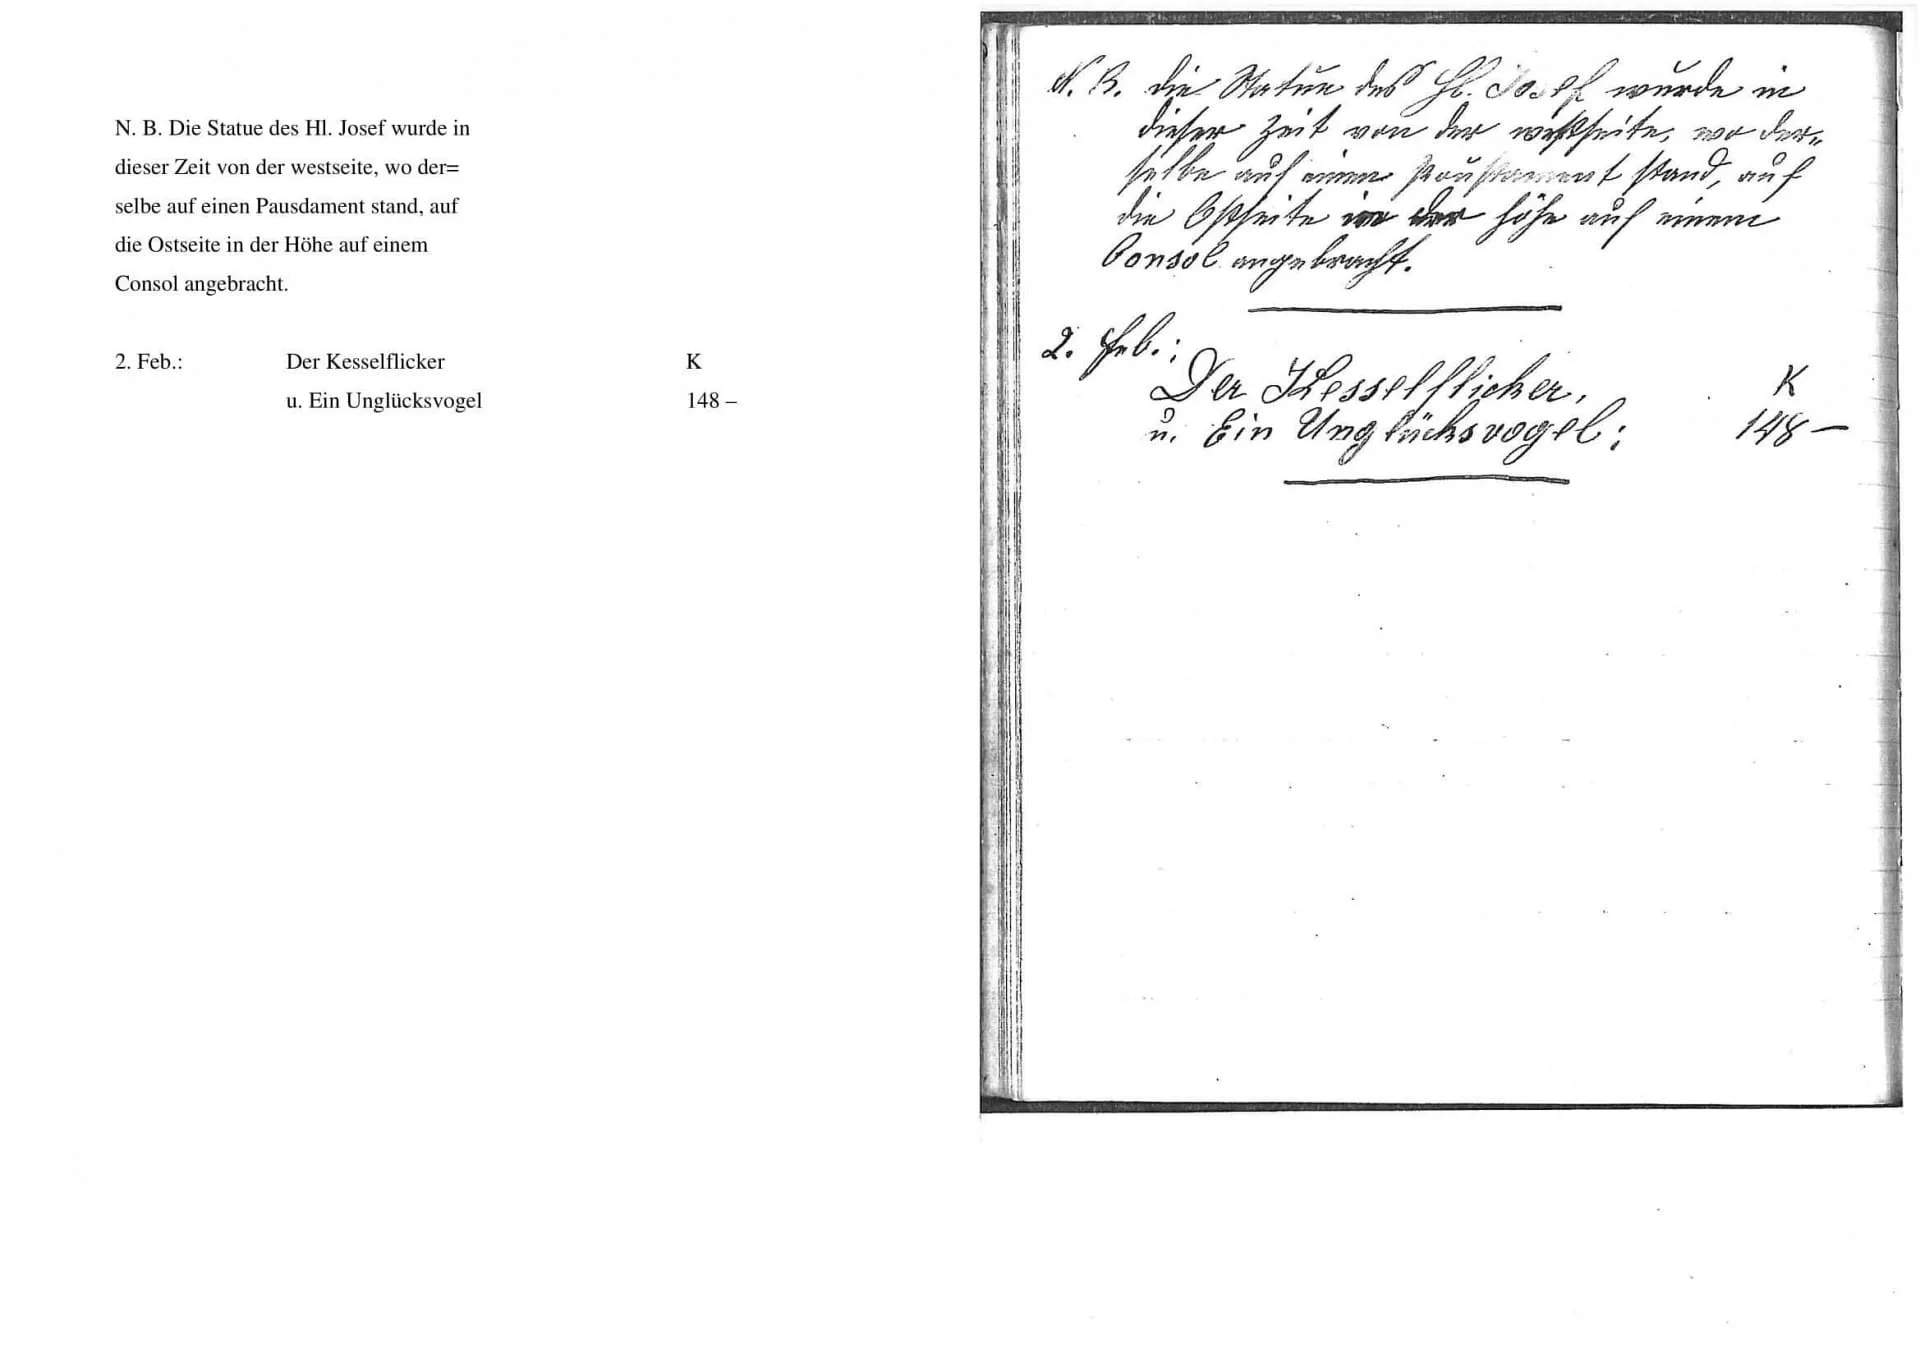 N. B. Die Statue des Hl. Josef wurde in
dieser Zeit von der westseite, wo der=
selbe auf einen Pausdament stand, auf
die Ostseite in der Höhe auf einem
Consol angebracht.
2. Feb.: Der Kesselflicker K
u. Ein Unglücksvogel 148 –
N. B. die Statue des Hl. Josef wurde in
dieser Zeit von der westseite, wo der=
selbe auf einen stand, auf
die Ostseite in der Höhe auf einem
Consol angebracht.
2. Feb.:
Der Kesselflicker, K
u. Ein Unglücksvogel: 148 –